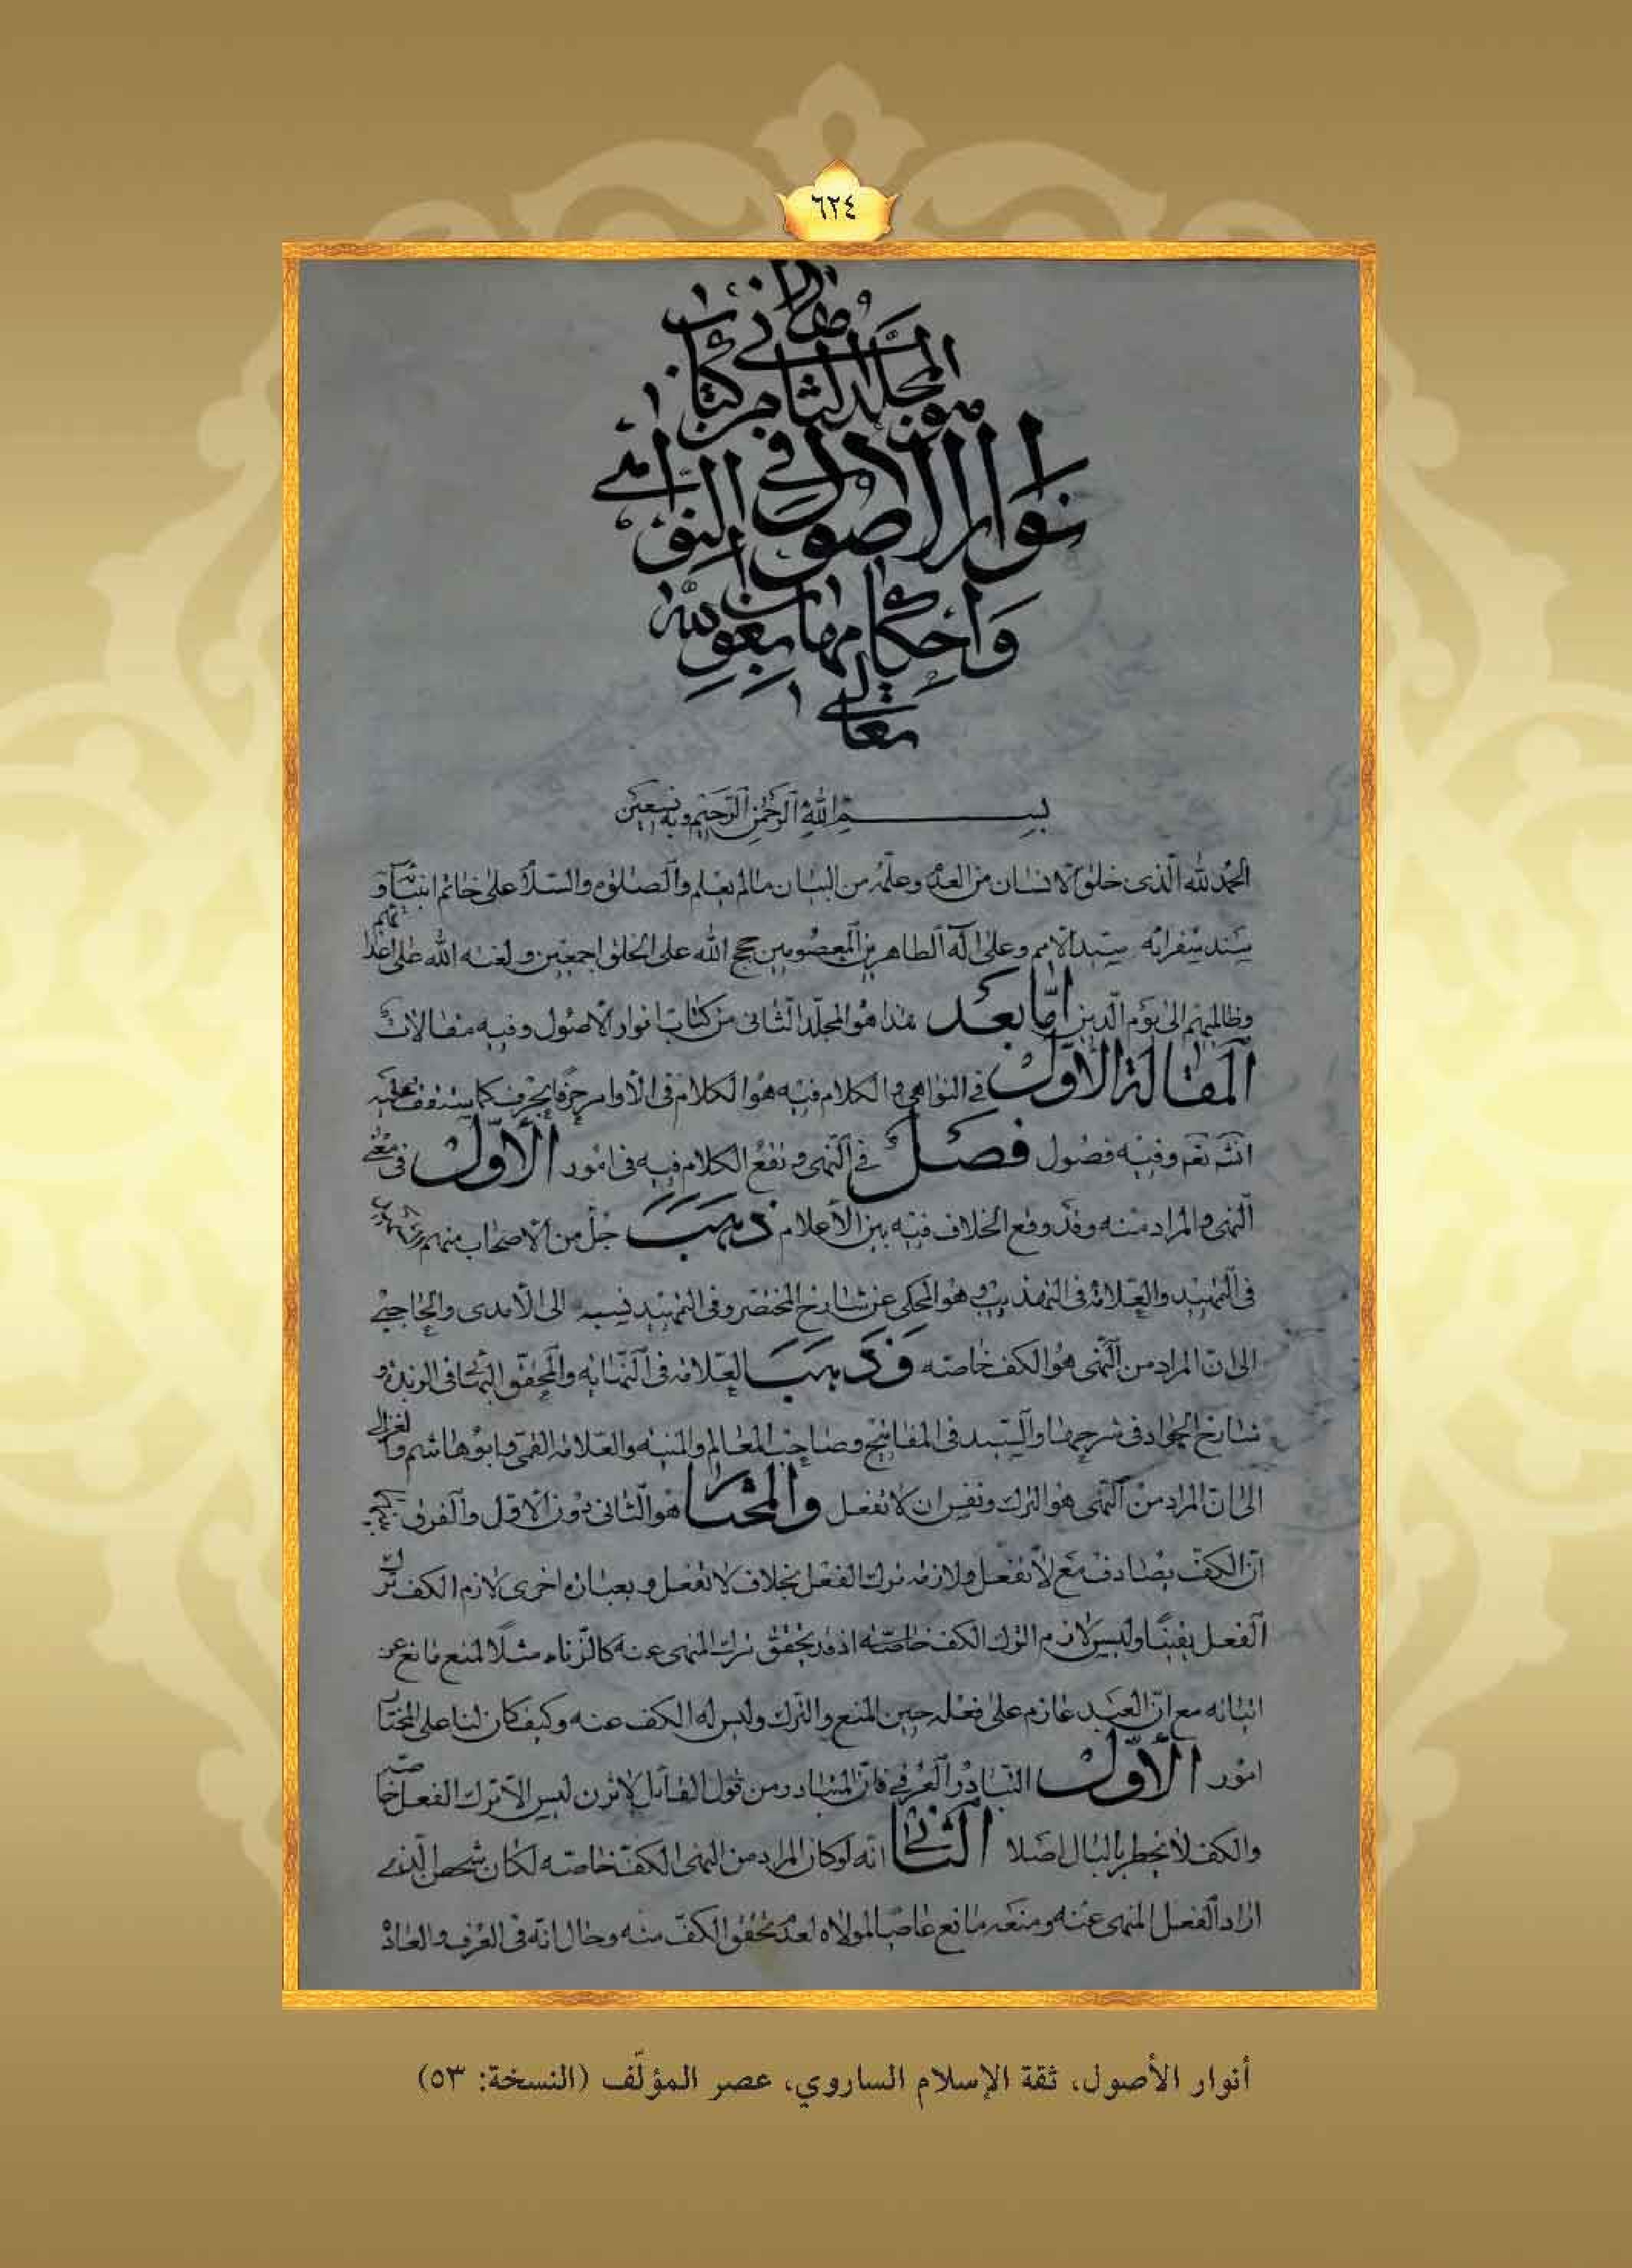 ٦٢٤
هذا هو
المجلد الثاني من كتاب
انوار الاصول في النواهي
واحكامها بعون الله
تعالى
بسم الله الرحمن الرحيم وبه نستعين
الحمد لله الذى خلق الانسان من العدم وعلمه من البيان مالم يعلم والصلوة والسلام على خاتم انبيائه و
سيد سفرائه سيد الامم وعلى آله الطاهرين المعصومين حجج الله على الخلق اجمعين ولعنه الله على اعدائهم
وظالميهم الى يوم الدين اما بعد هذا هو المجلد الثانى من كتاب انوار الاصول وفيه مقالات
المقالة الاولى في النواهي والكلام فيه هو الكلام فى الأوامر حرفا بحرف كما ستقف عليه
انشاء الله تعالى وفيه فصول فصل في النهى ويقع الكلام فيه فى امور الأول فى معنى
النهى والمراد منه وقد وقع الخلاف فيه بين الأعلام ذهب جل من الاصحاب منهم
فى التمهيد والعلامة فى التهذيب وهو المحكى عن شارح المختصر وفى التمهيد نسبه الى الآمدى والحاجبى
الى ان المراد من النهى هو الكف خاصه وذهب العلامة فى النهايه والمحقق البهائى فى الزبدة و
شارح الجواد فى شرحها والسيد فى المفاتيح وصاحب المعالم والمنيه والعلامة القمى وابو هاشم والغزالى
الى ان المراد من النهى هو الترك ونفس ان لا تفعل والمختار هو الثانى دون الاول والفرق
ان الكف يصادف مع لا تفعل ولازمه ترك الفعل بخلاف لا تفعل وبعبارة اخرى لازم الكف ترك
الفعل يقينا وليس لازم الترك الكف خاصه اذ قد يتحقق ترك المنهى عنه كالزناء مثلا لمنع مانع عن
اتيانه مع ان العبد عازم على فعله حين المنع والترك وليس له الكف عنه وكيف كان لنا على المختار
امور الأول التبادر العرفي فان المتبادر من قول القائل لا تزن ليس الا ترك الفعل خاصه
والكف لا يخطر بالبال اصلا الثاني انه لو كان المراد من النهى الكف خاصه لكان شخص الذى
اراد الفعل المنهى عنه ومنعه مانع عاصيا لمولاه لعدم تحقق الكف منه وحال انه فى العرف والعادة
أنوار الأصول، ثقة الإسلام الساروي، عصر المؤلّف (النسخة: ٥٣)